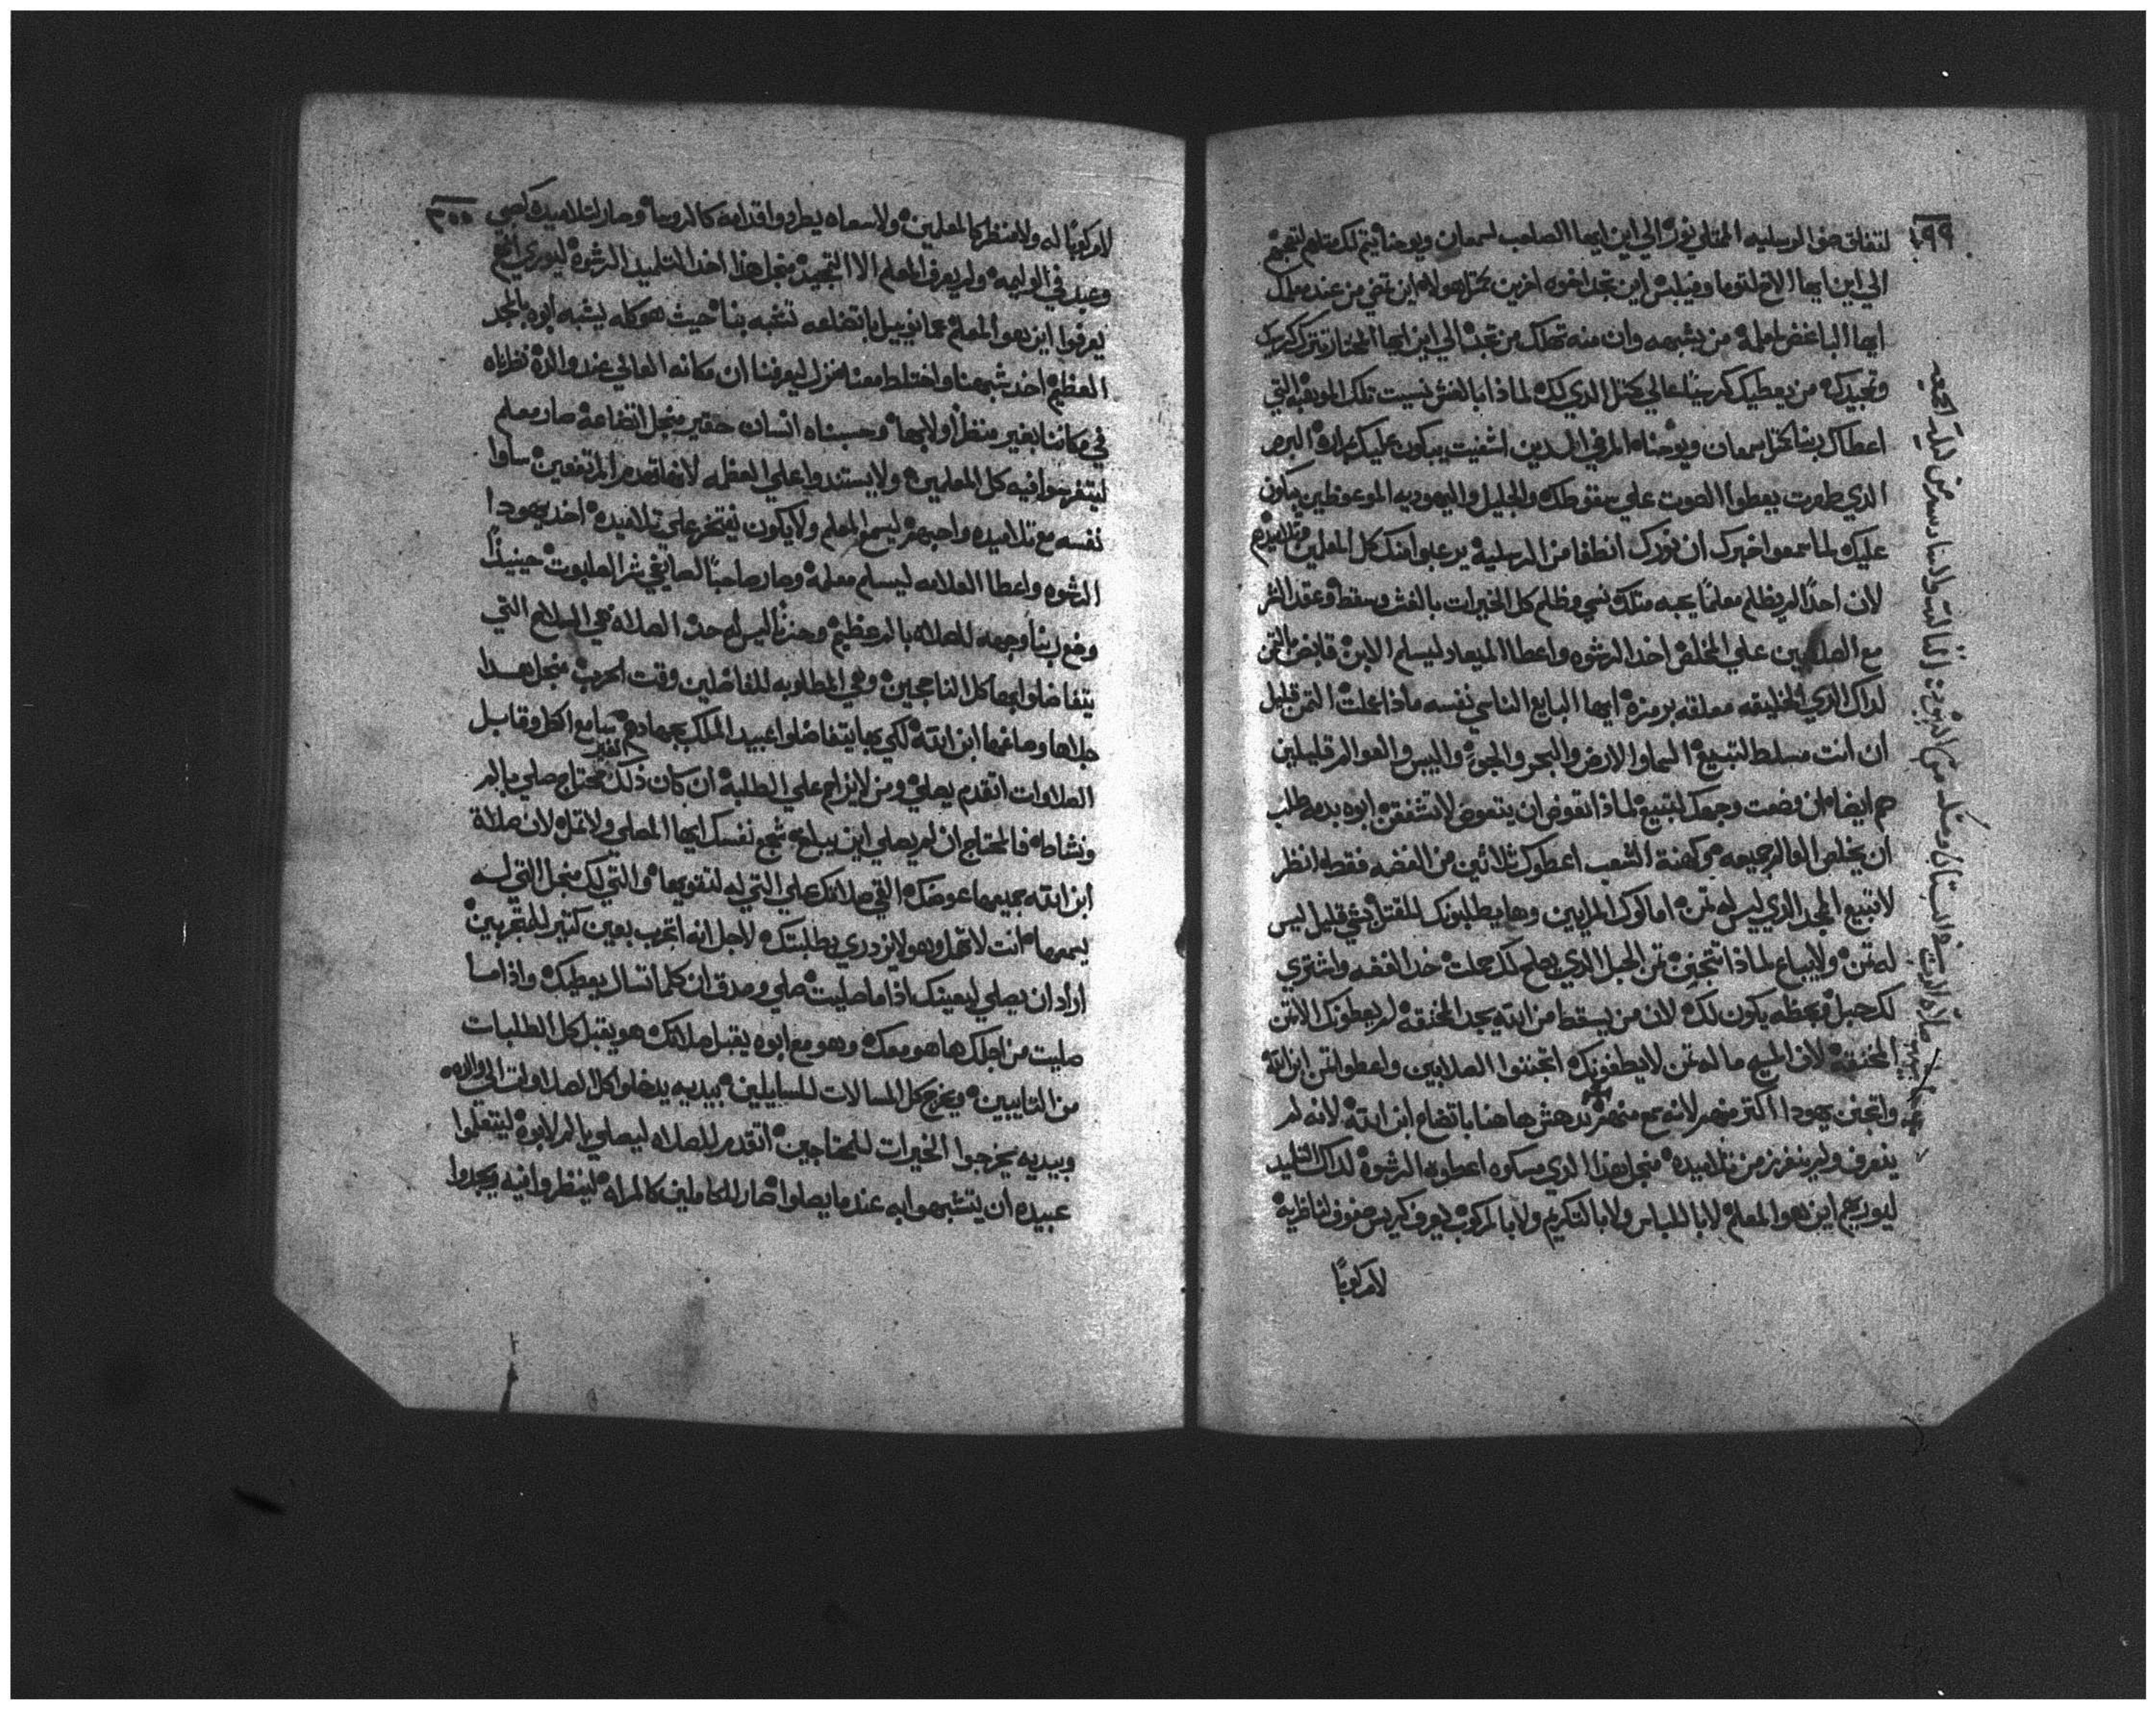 ٢٩٩
لتفاق صف الرسليه الممتلي نورًا الي اين ايها الصاحب لسمعان ويوحنا
الي اين ايها الاخ لتوما وفيلبس اين تجد اخوه اخرين مثل هولاء اين تمضي من عند معلمك
ايها الباغض لمعلمه من يشبهه وان منه تهلك من تجد الي اين ايها المختار تترك كرسيك
وتمجيدك من يعطيك كرسيًا عالي مثل الذي لك لماذا بالغش نسيت تلك الموهبه التي
اعطاك ربنا مثل سمعان ويوحنا المرضي الذين اشفيت يبكون عليك البرص
الذي طهرت يعطوا الصوت علي سقوطك والجليل واليهوديه الموعوظين يبكون
عليك لما سمعوا خبرك ان نورك انطفا من الرسلية يرعبوا منك كل المعلمين وتلاميذهم
لان احدًا لم يظلم معلمًا يحبه مثلك نسي وظلم كل الخيرات بالغش وسقط وعقد الشر
مع الصلابين علي المخلص اخد الرشوه واعطا الميعاد ليسلم الابن قابض الثمن
لداك الدي الخليقه معلقه برمزه ايها البايع الناسي نفسه ماذا عملت الثمن قليل
ان انت مسلط لتبيع السما والارض والبحر والجو واليبس والعوالم قليلين
هم ايضا ان وضعت وجهك لتبيع لماذا تعوض ان يتعوض لا تشفق ابوه بدمه طلب
ان يخلص العوالم جميعه من كهنة الشعب اعطوك ثلاثين من الفضه فقط انظر
لا تبيع المجد الدي ليس له تمن اما لوك المرايين وها يطلبونك للمقتل بشي قليل ليس
له تمن ولا يباع لماذا تتجنن تمن الحبل الدي يصلح لك حملت خد الفضه واشتري
لك حبل وحظه يكون لك لان من يسقط من الله يجد المخنقه لم يعطونك الا تمن
المخنقة لان المسيح ما له تمن لا يطغونك اتجننوا الصلابين واعطوا تمن ابن الله
واتجنن يهودا اكتر منهم لانه سمع منهم ندهش هاهنا باتضاع ابن الله لانه لم
ينعرف ولم ينفرز من تلاميده منجل هذا الدي مسكوه اعطوه الرشوة لداك التلميد
ليوريهم اين هو المعلم لا باللباس ولا بالتكريم ولا بالمركوب يعرف كريس صفوف لناظريه
لا مركوبًا
٣٠٠
لا مركوبًا له ولا منظر كالمعلمين ولا سعاه يطردوا قدامه كالروسا وصار لتلاميده كصبي
وعبد في الوليمه ولم يعرف المعلم الا التمجيد منجل هذا اخد التلميد الرشوة ليوري
يعرفوا اين هو المعلم عمانوييل باتضاعه تشبه بنا حيث هو كله يشبه ابوه بالمجد
العظيم اخد شبهنا واختلط معنا نزل ليعرفنا ان مكانه العالي عند والده نظرناه
في مكاننا بغير منظر ولا بها وحسبناه انسان حقير منجل اتضاعه صار معلم
ليتفرسوا فيه كل المعلمين ولا يستندوا علي العظمه لانها تهدم المرتفعين ساوا
نفسه مع تلاميده واحبهم ليسمع المعلم ولا يكون يفتخر علي تلاميده اخد يهودا
الرشوه واعطا العلامه ليسلم معلمه وصار صاحبًا لصانعي شر الصلبوت حينيذًا
وضع ربنا وجهه للصلاه بالم عظيم وحزنًا ليس له حد الصلاه هي السلاح التي
يتفاضلوا بها كل الناجحين وهي المطلوبه للفاضلين وقت الحرب منجل هدا
جلاها وصاغها ابن الله لكي بها يتفاضلوا عبيد الملك بجهادهم سامع الكل وقابل
الصلاوات اتقدم يصلي ومن لا يزاحم علي الطلبه ان كان ذلك الغير محتاج صلي بالم
ونشاط فالمحتاج ان لم يصلي اين يبلغ شجع نفسك ايها المصلي ولا تمل لان صلاة
ابن الله جميعها عوضك القي صلاتك علي التي له لتقويها والتي لك منجل التي له
يسمعها انت لا تمل وهو لا يزدري بطلبتك لاجل انه اتحرب بعين كتير للمتجربين
اراد ان يصلي ليعينك اذا ما صليت صلي وصدق ان كلما تسال يعطيك واذا ما
صليت من اجلك ها هو معك وهو مع ابوه يقبل صلاتك هو يقبل كل الطلبات
من التايبين ويخرج كل المسالات للسايلين بيديه يدخلوا كل الصلاوات الي والده
وبيديه يخرجوا الخيرات للمحتاجين اتقدم للصلاه ليصلي بالم لابوه ليتعلموا
عبيده ان يتشبهوا به عندما يصلوا صار للكاملين كالمراه لينظروا فيه ويجدوا